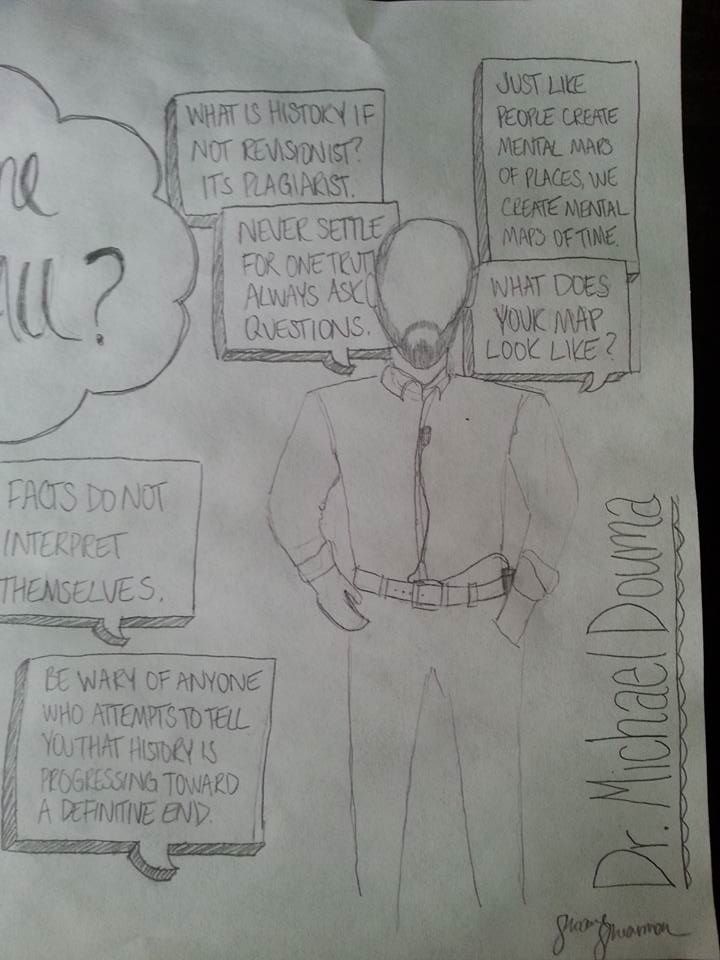 ne
All?
WHAT IS HISTORY IF
NOT REVISIONIST?
ITS PLAGIARIST.
NEVER SETTLE
FOR ONE TRUT
ALWAYS ASK
QUESTIONS.
JUST LIKE
PEOPLE CREATE
MENTAL MAPS
OF PLACES, WE
CREATE MENTAL
MAPS OF TIME.
WHAT DOES
YOUR MAP
LOOK LIKE?
FACTS DO NOT
INTERPRET
THEMSELVES.
BE WARY OF ANYONE
WHO ATTEMPTS TO TELL
YOU THAT HISTORY IS
PROGRESSING TOWARD
A DEFINITIVE END.
Dr. Michael Douma